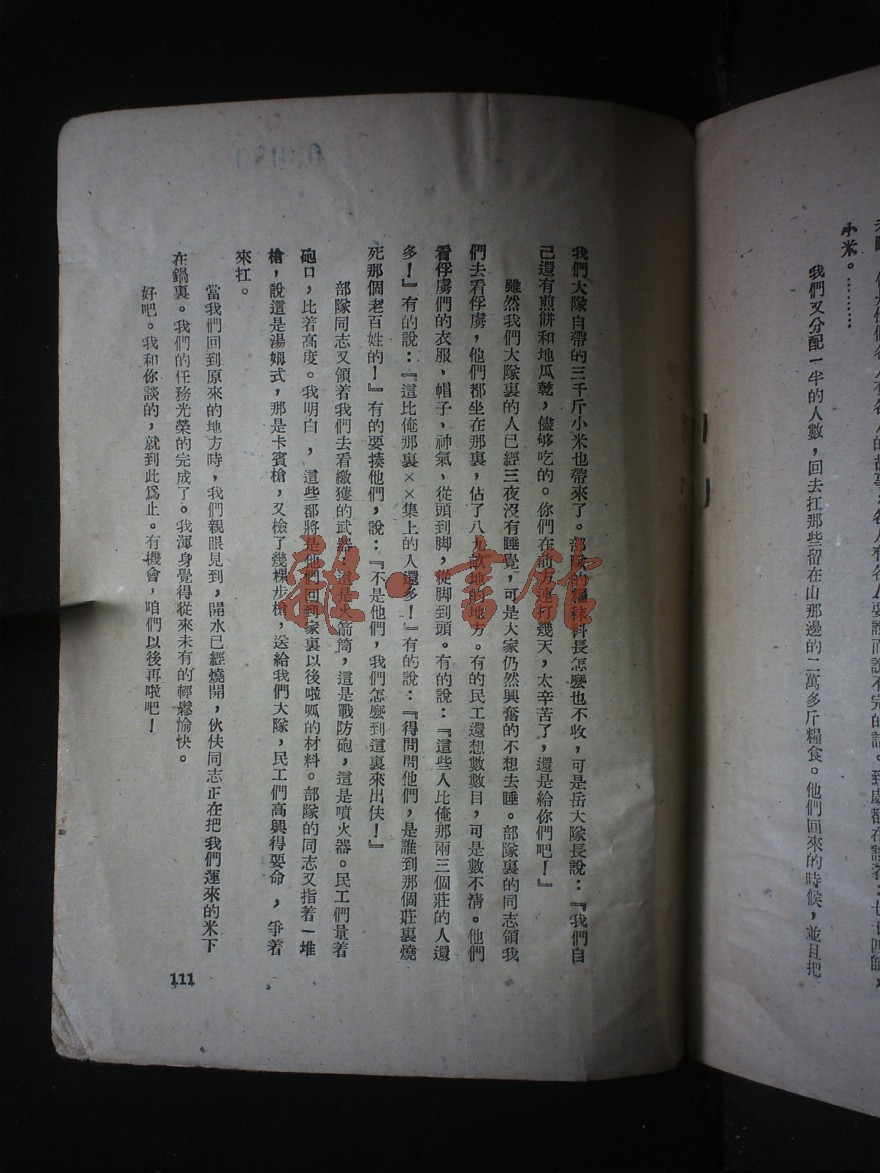 小米。………
我們又分配一半的人數，回去扛那些留在山那邊的二萬多斤糧食。他們回來的時候，並且把
我們大隊自帶的三千斤小米也帶來了。部隊的糧秣科長怎麼也不收，可是岳大隊長說：『我們自
己還有煎餅和地瓜乾，儘够吃的。你們在前方連打幾天，太辛苦了，還是給你們吧！』
雖然我們大隊裏的人已經三夜沒有睡覺，可是大家仍然興奮的不想去睡。部隊裏的同志領我
們去看俘虜，他們都坐在那裏，佔了八九畝地的地方。有的民工還想數數目，可是數不清。他們
看俘虜們的衣服、帽子、神氣、從頭到脚，從脚到頭。有的說：『這些人比俺那兩三個莊的人還
多！』有的說：『這比俺那裏××集上的人還多！』有的說：『得問問他們，是誰到那個莊裏燒
死那個老百姓的！』有的要揍他們，說：『不是他們，我們怎麼到這裏來出伕！』
部隊同志又領着我們去看繳獲的武器：這是火箭筒，這是戰防砲，這是噴火器。民工們量着
砲口，比着高度。我明白，這些都將是他們回到家裏以後啦呱的材料。部隊的同志又指着一堆
槍，說這是湯姆式，那是卡賓槍，又檢了幾棵步槍，送給我們大隊，民工們高興得要命，爭着
來扛。
當我們回到原來的地方時，我們親眼見到，開水已經燒開，伙伕同志正在把我們運來的米下
在鍋裏。我們的任務光榮的完成了。我渾身覺得從來未有的輕鬆愉快。
好吧。我和你談的，就到此爲止。有機會，咱們以後再啦吧！
111
雜·書館